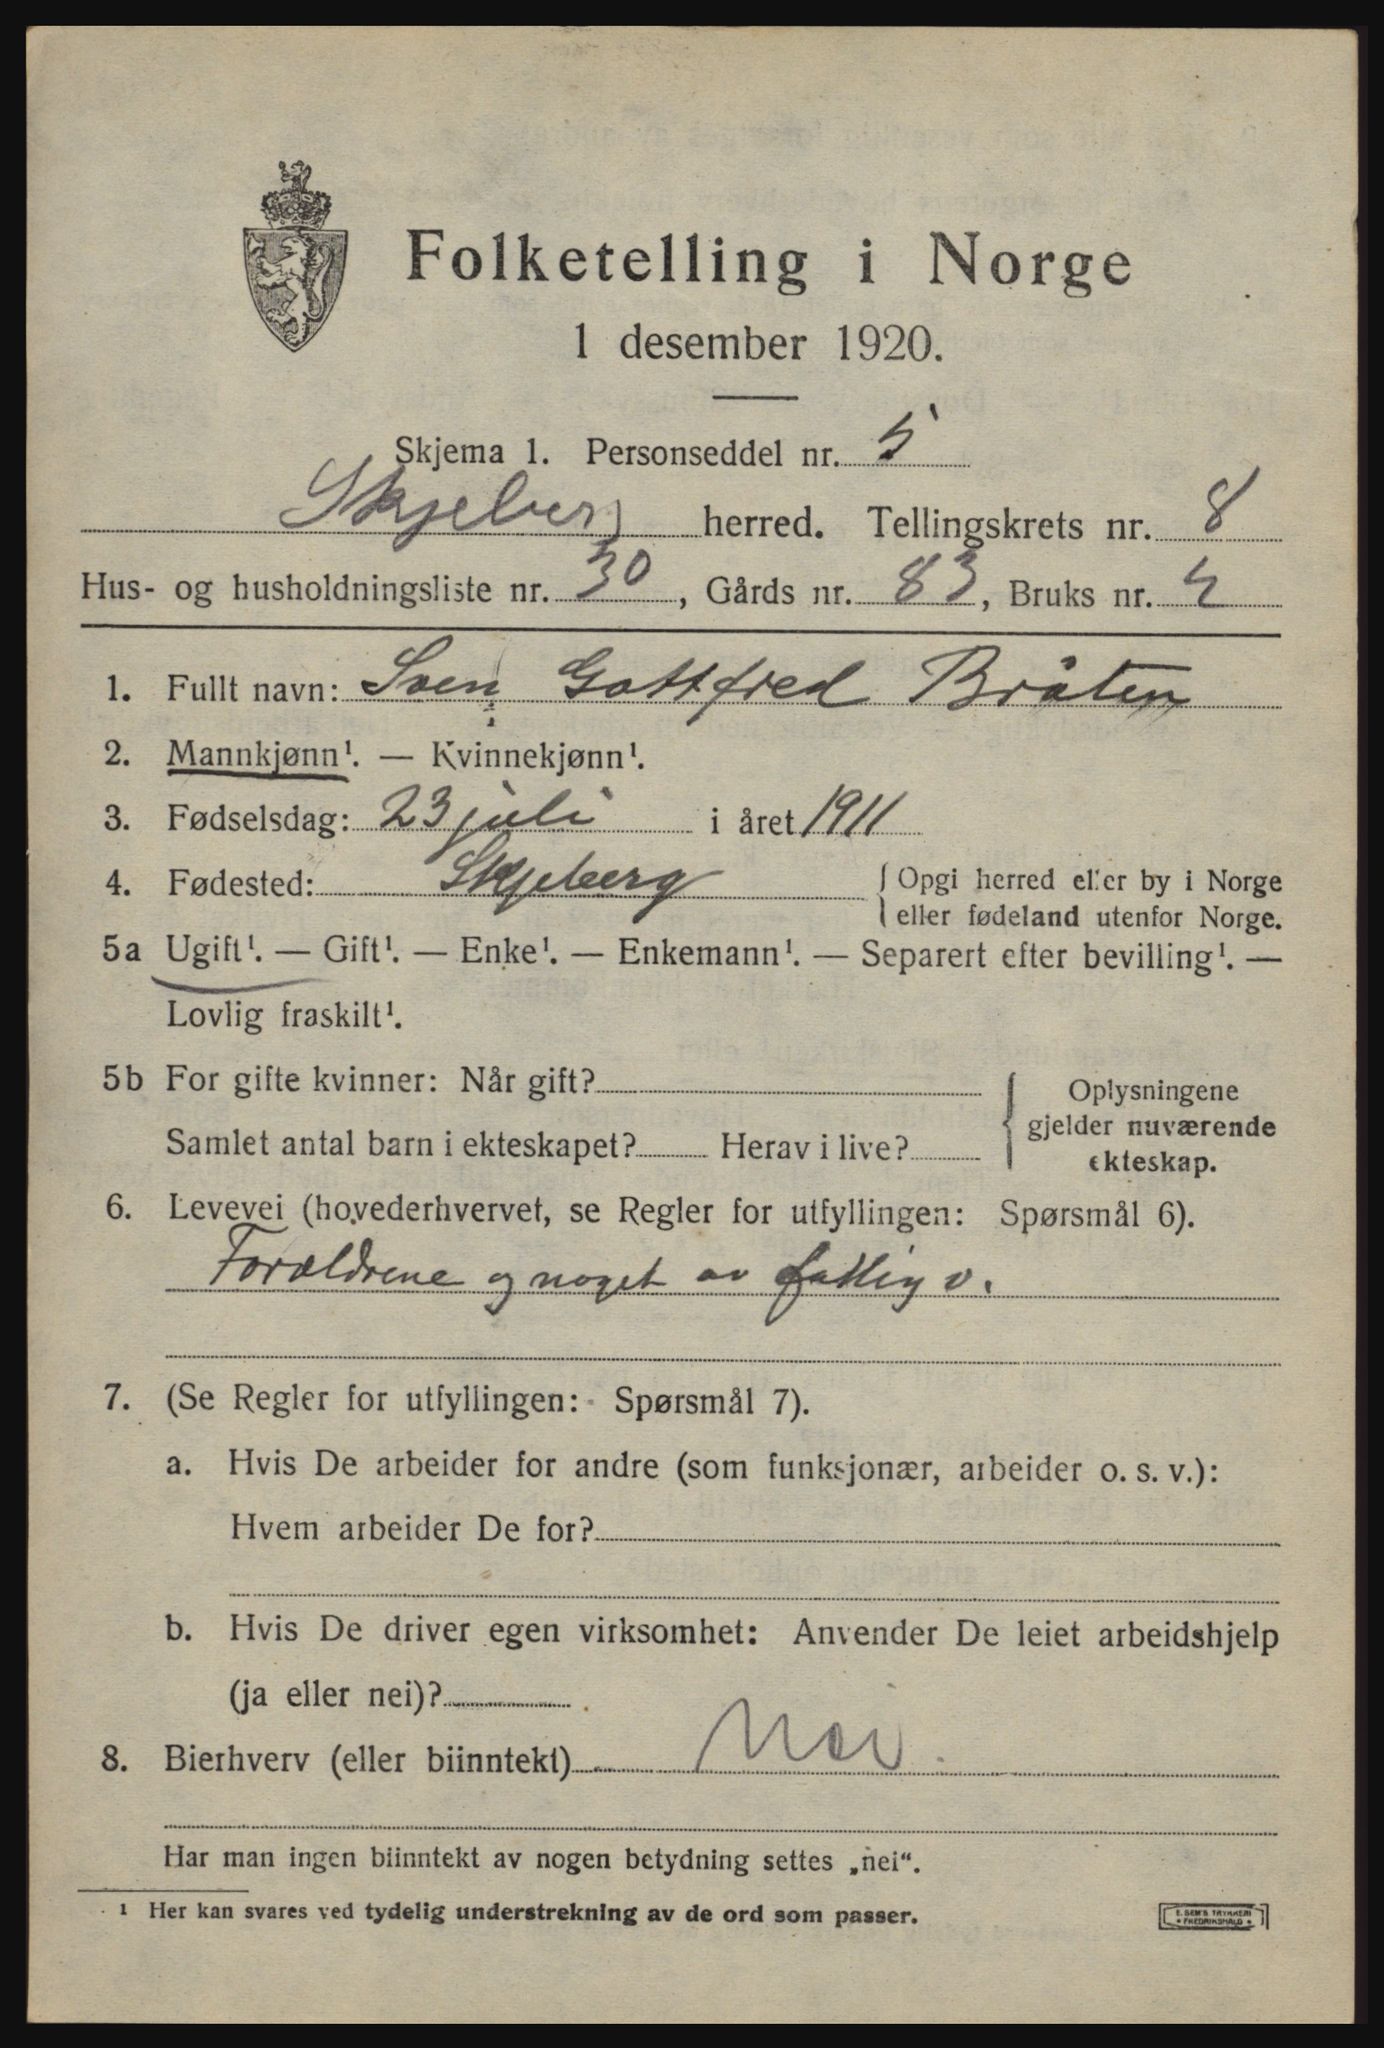 Folketelling i Norge
1 desember 1920.
Skjema 1. Personseddel nr. 5
Skjeberg herred. Tellingskrets nr. 8
Hus- og husholdningsliste nr. 30, Gårds nr. 83, Bruks nr.
1. Fullt navn: Sven Gottfred Bråten
2. Mannkjønn¹. — Kvinnekjønn¹.
3. Fødselsdag: 23 juli i året 1911
4. Fødested: Skjeberg { Opgi herred eller by i Norge
eller fødeland utenfor Norge.
5a Ugift¹. — Gift¹. — Enke¹. — Enkemann¹. — Separert efter bevilling¹. —
Lovlig fraskilt¹.
5b For gifte kvinner: Når gift?
Samlet antal barn i ekteskapet? Herav i live?
{ Oplysningene
gjelder nuværende
ekteskap.
6. Levevei (hovederhvervet, se Regler for utfyllingen: Spørsmål 6).
Forældrene og noget av fattigv.
7. (Se Regler for utfyllingen: Spørsmål 7).
a. Hvis De arbeider for andre (som funksjonær, arbeider o. s. v.):
Hvem arbeider De for?
b. Hvis De driver egen virksomhet: Anvender De leiet arbeidshjelp
(ja eller nei)?
8. Bierhverv (eller biinntekt) Nei.
Har man ingen biinntekt av nogen betydning settes „nei“.
¹ Her kan svares ved tydelig understrekning av de ord som passer.
E. SEM'S TRYKKERI
FREDRIKSHALD